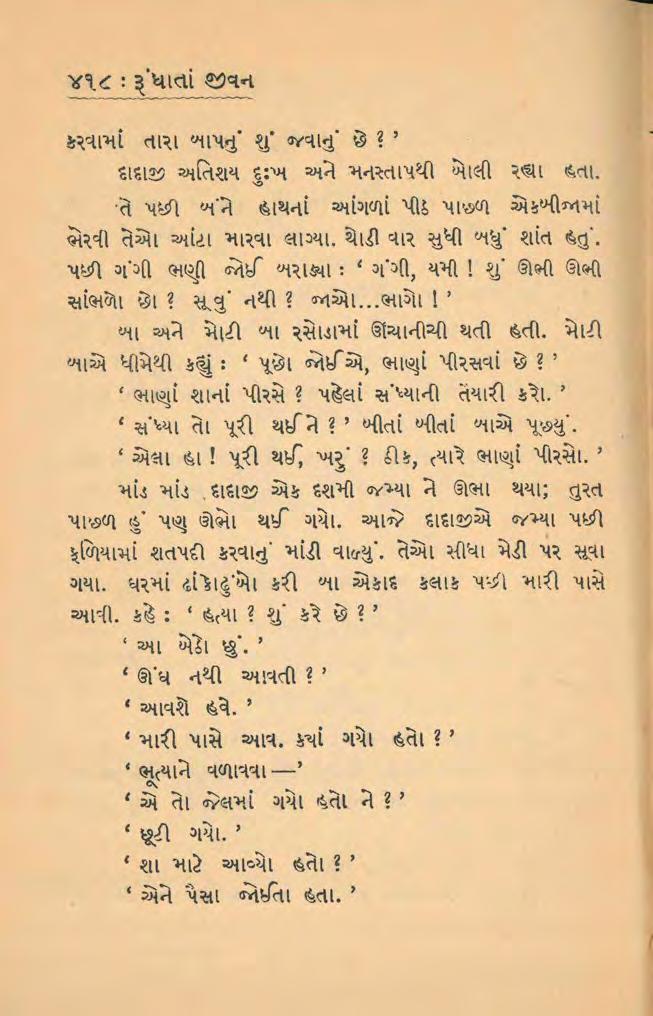 ૪૧૮ : રૂંધાતાં જીવન
કરવામાં તારા બાપનું શું જવાનું છે ? ’
દાદાજી અતિશય દુઃખ અને મનસ્તાપથી બોલી રહ્યા હતા.
તે પછી બંને હાથનાં આંગળાં પીઠ પાછળ એકબીજામાં
ભેરવી તેઓ આંટા મારવા લાગ્યા. થોડી વાર સુધી બધું શાંત હતું.
પછી ગંગી ભણી જોઈ બરાડ્યા : ‘ ગંગી, યમી ! શું ઊભી ઊભી
સાંભળો છો ? સૂવું નથી ? જાઓ...ભાગો ! ’
બા અને મોટી બા રસોડામાં ઊંચાનીચી થતી હતી. મોટી
બાએ ધીમેથી કહ્યું : ‘ પૂછો જોઈએ, ભાણાં પીરસવાં છે ? ’
‘ ભાણાં શાનાં પીરસે ? પહેલાં સંધ્યાની તૈયારી કરો. ’
‘ સંધ્યા તો પૂરી થઈ ને ? ’ બીતાં બીતાં બાએ પૂછ્યું.
‘ એલા હા ! પૂરી થઈ, ખરું ? ઠીક, ત્યારે ભાણાં પીરસો. ’
માંડ માંડ દાદાજી એક દશમી જમ્યા ને ઊભા થયા; તુરત
પાછળ હું પણ ઊભો થઈ ગયો. આજે દાદાજીએ જમ્યા પછી
ફળિયામાં શતપદી કરવાનું માંડી વાળ્યું. તેઓ સીધા મેડી પર સૂવા
ગયા. ઘરમાં ઢાંકોઢુંબો કરી બા એકાદ કલાક પછી મારી પાસે
આવી. કહે : ‘ હત્યા ? શું કરે છે ? ’
‘ આ બેઠો છું. ’
‘ ઊંઘ નથી આવતી ? ’
‘ આવશે હવે. ’
‘ મારી પાસે આવ. ક્યાં ગયો હતો ? ’
‘ ભૂત્યાને વળાવવા —’
‘ એ તો જેલમાં ગયો હતો ને ? ’
‘ છૂટી ગયો. ’
‘ શા માટે આવ્યો હતો ? ’
‘ એને પૈસા જોઈતા હતા. ’